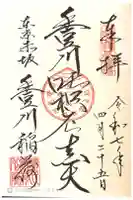 奉拝
令和七年
四月二十五日
豊川吒枳尼真天
東京赤坂
豊川稲荷